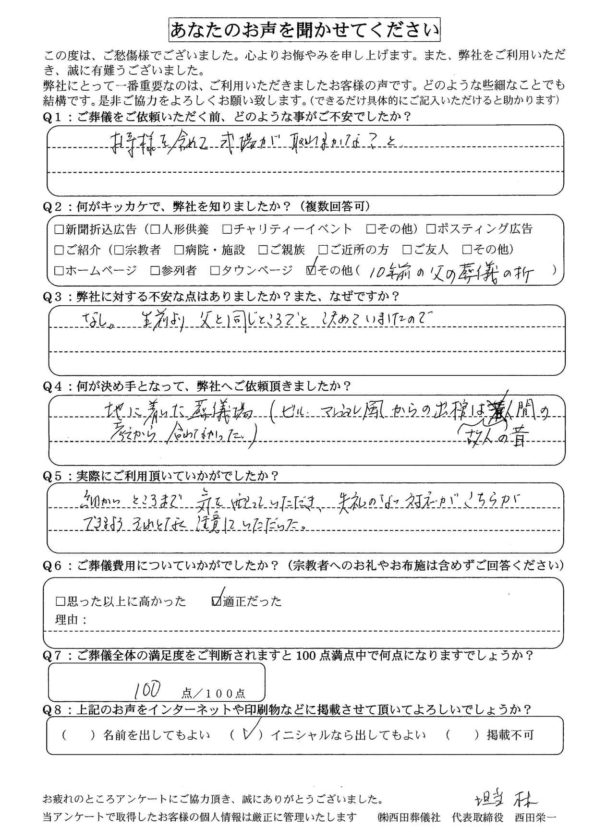 あなたのお声を聞かせてください
この度は、ご愁傷様でございました。心よりお悔やみを申し上げます。また、弊社をご利用いただ
き、誠に有難うございました。
弊社にとって一番重要なのは、ご利用いただきましたお客様の声です。どのような些細なことでも
結構です。是非ご協力をよろしくお願い致します。(できるだけ具体的にご記入いただけると助かります)
Q1：ご葬儀をご依頼いただく前、どのような事がご不安でしたか？
お寺様を含めて 式場が 取れるかな？と
Q2：何がキッカケで、弊社を知りましたか？（複数回答可）
□新聞折込広告（□人形供養 □チャリティーイベント □その他）□ポスティング広告
□ご紹介（□宗教者 □病院・施設 □ご親族 □ご近所の方 □ご友人 □その他）
□ホームページ □参列者 □タウンページ ☑その他（10年前の父の葬儀の折）
Q3：弊社に対する不安な点はありましたか？また、なぜですか？
なし。 生前より 父と同じところでと 決めていましたので
Q4：何が決め手となって、弊社へご依頼頂きましたか？
地に着いた葬儀場（ビル、マンション風からの出棺は 人間の
故人の昔
Q5：実際にご利用頂いていかがでしたか？
細かい ところまで 気を配っていただき、失礼のない対応が こちらが
できるよう それとなく 注意していただいた。
Q6：ご葬儀費用についていかがでしたか？（宗教者へのお礼やお布施は含めずご回答ください）
□思った以上に高かった ☑適正だった
理由：
Q7：ご葬儀全体の満足度をご判断されますと100点満点中で何点になりますでしょうか？
100 点／100点
Q8：上記のお声をインターネットや印刷物などに掲載させて頂いてよろしいでしょうか？
（ ）名前を出してもよい （✓）イニシャルなら出してもよい （ ）掲載不可
お疲れのところアンケートにご協力頂き、誠にありがとうございました。 担当 林
当アンケートで取得したお客様の個人情報は厳正に管理いたします ㈱西田葬儀社 代表取締役 西田栄一